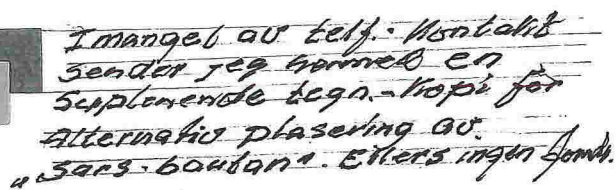 I mangel av telf.-Kontakt
sender jeg hermed en
Supplerende tegn.-Kopi for
Alternativ plasering av.
"Sars-bautan". Ellers ingen